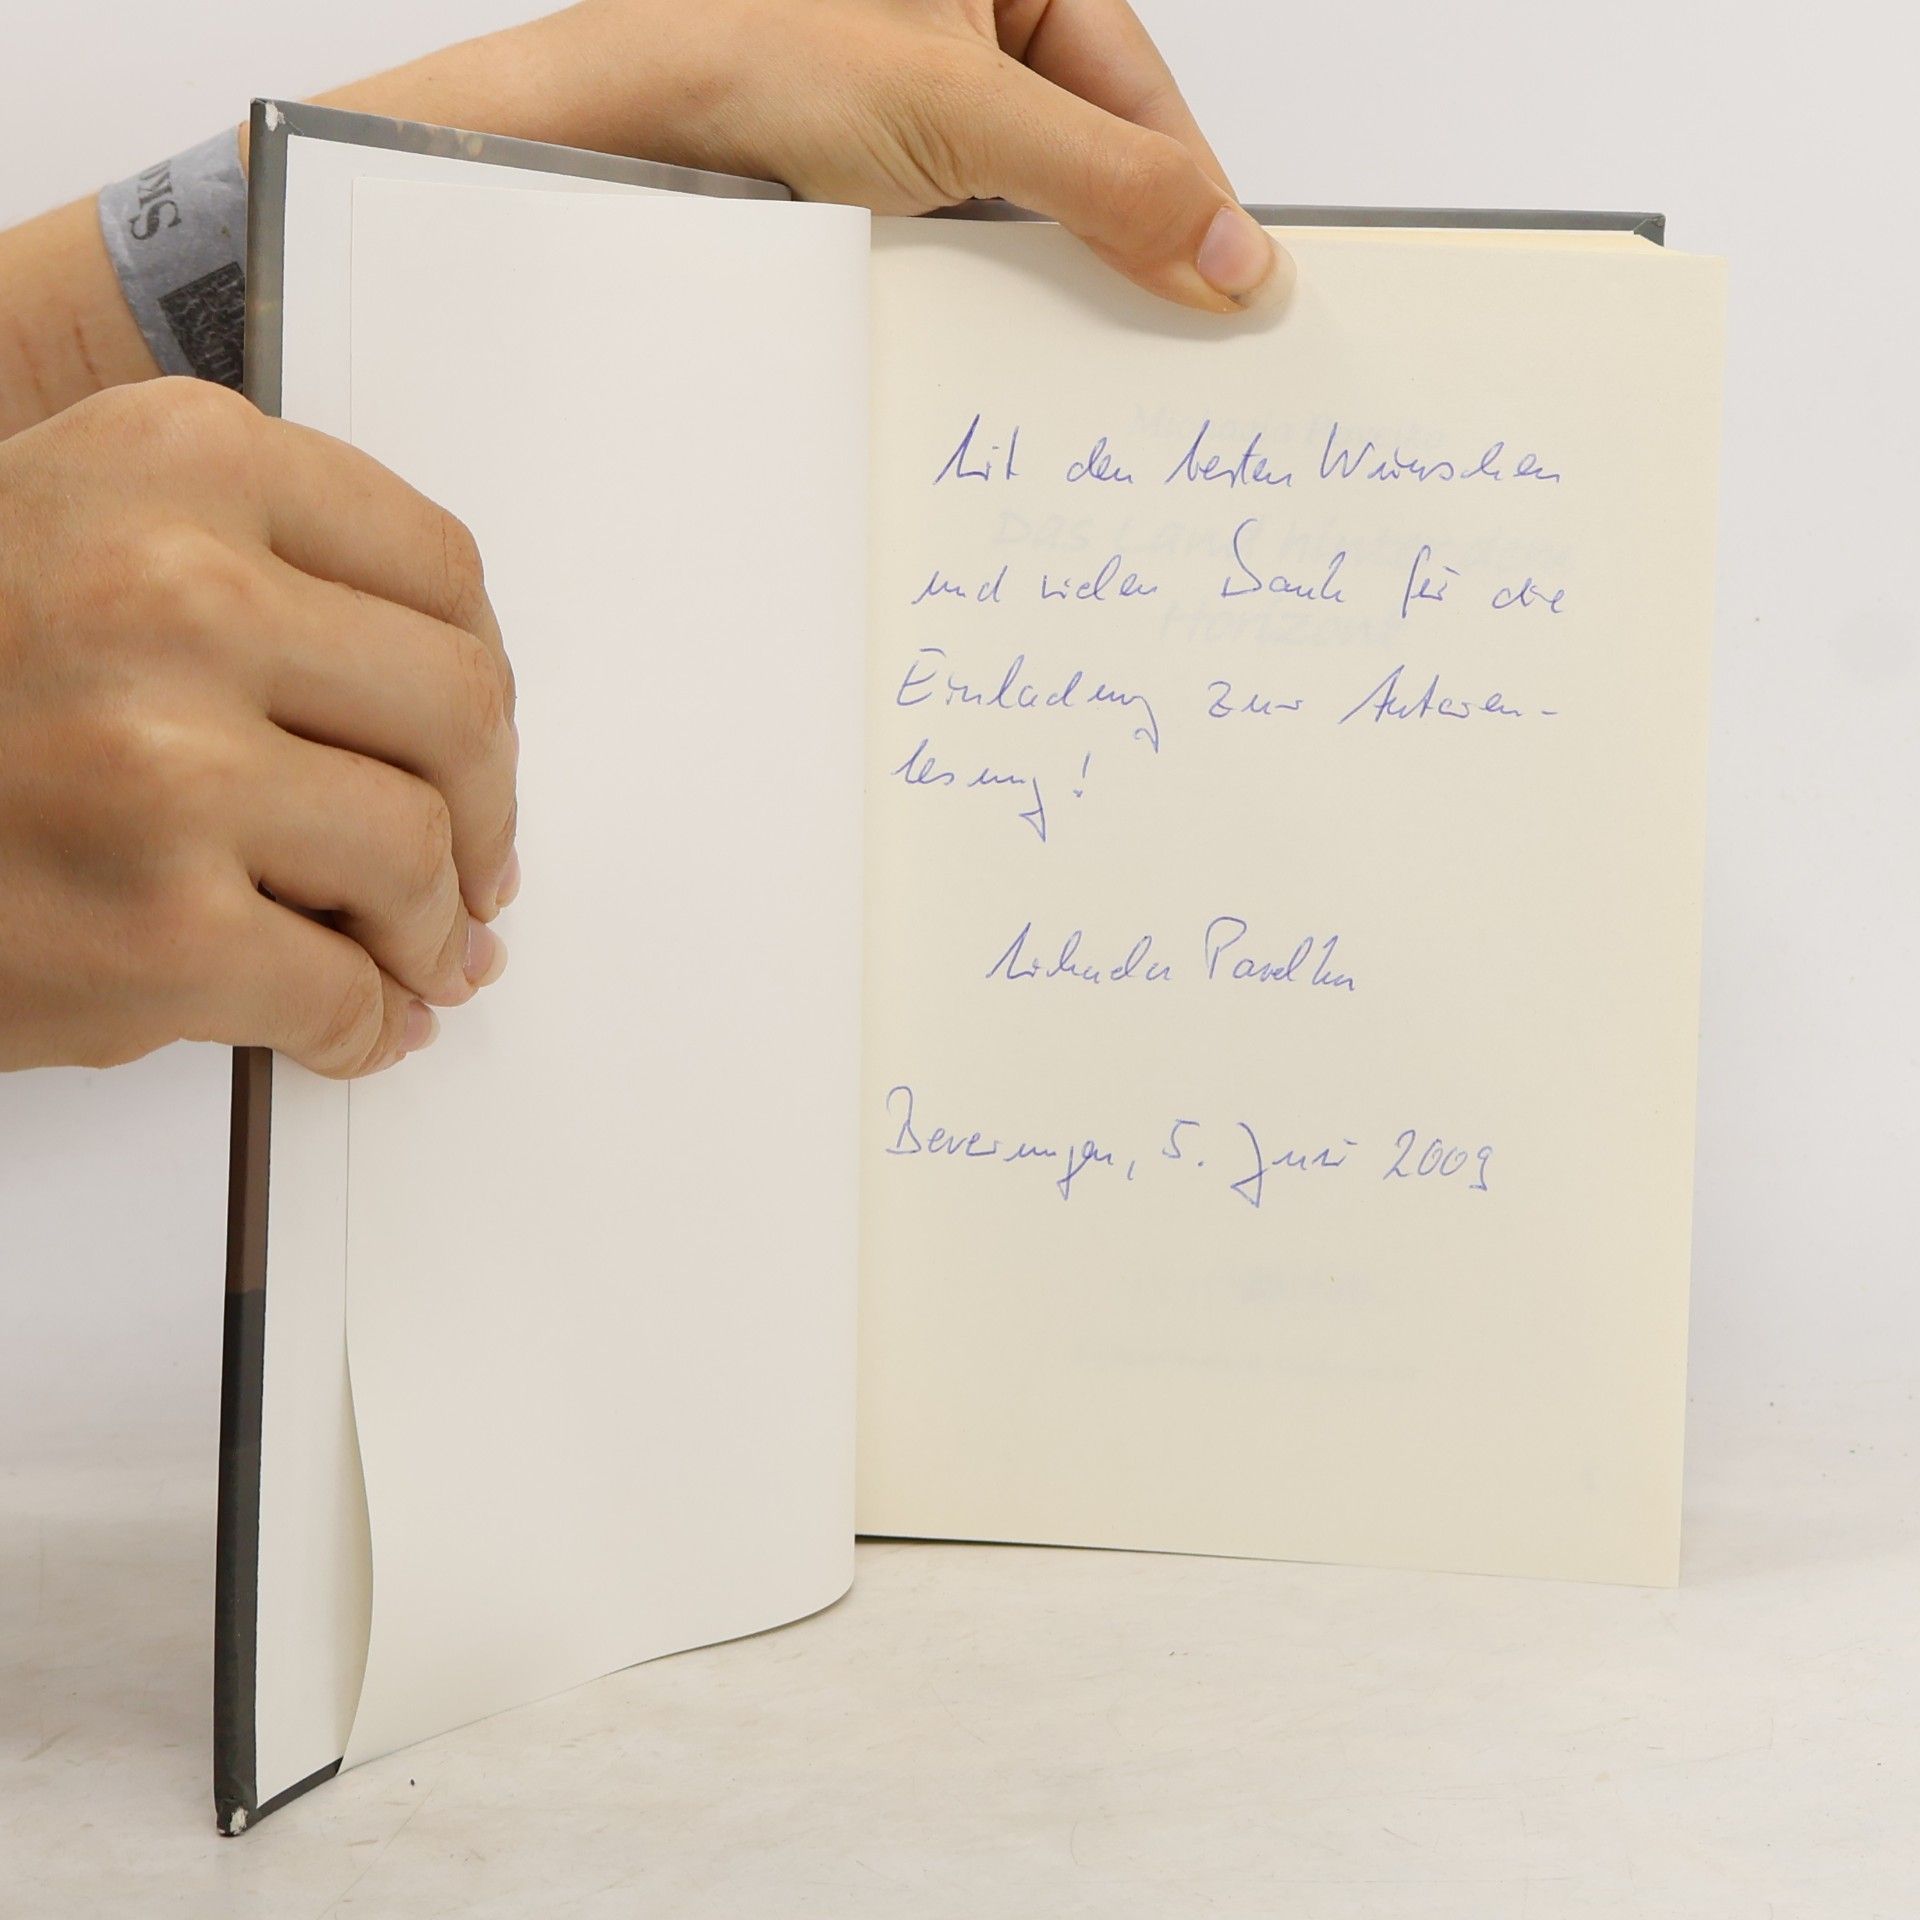 Mit den besten Wünschen
und vielen Dank für die
Einladung zur Autoren-
lesung!
Michaela Pavelka
Beverungen, 5. Juni 2009
Das Land hinter dem
Horizont